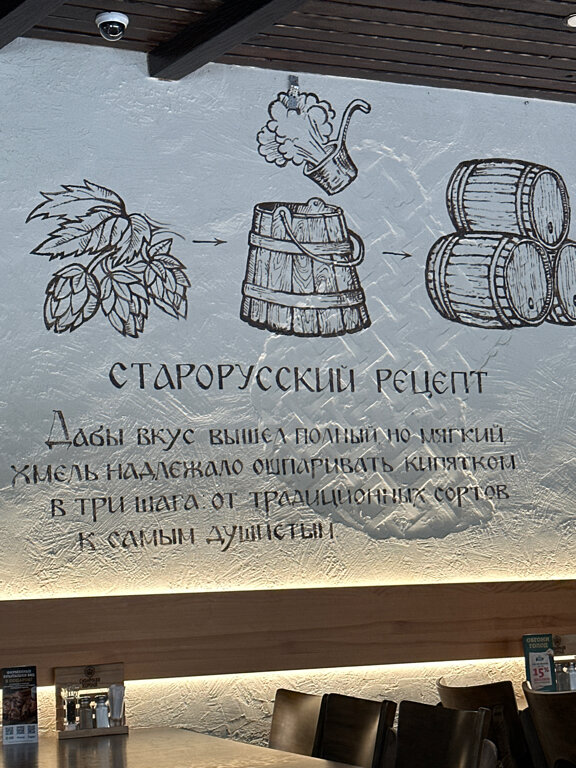 СТАРОРУССКИЙ РЕЦЕПТ
Дабы вкус вышел полный, но мягкий,
хмель надлежало ошпаривать кипятком
в три шага: от традиционных сортов
к самым душистым.
ОБГОНИ
ГОЛОД
15%